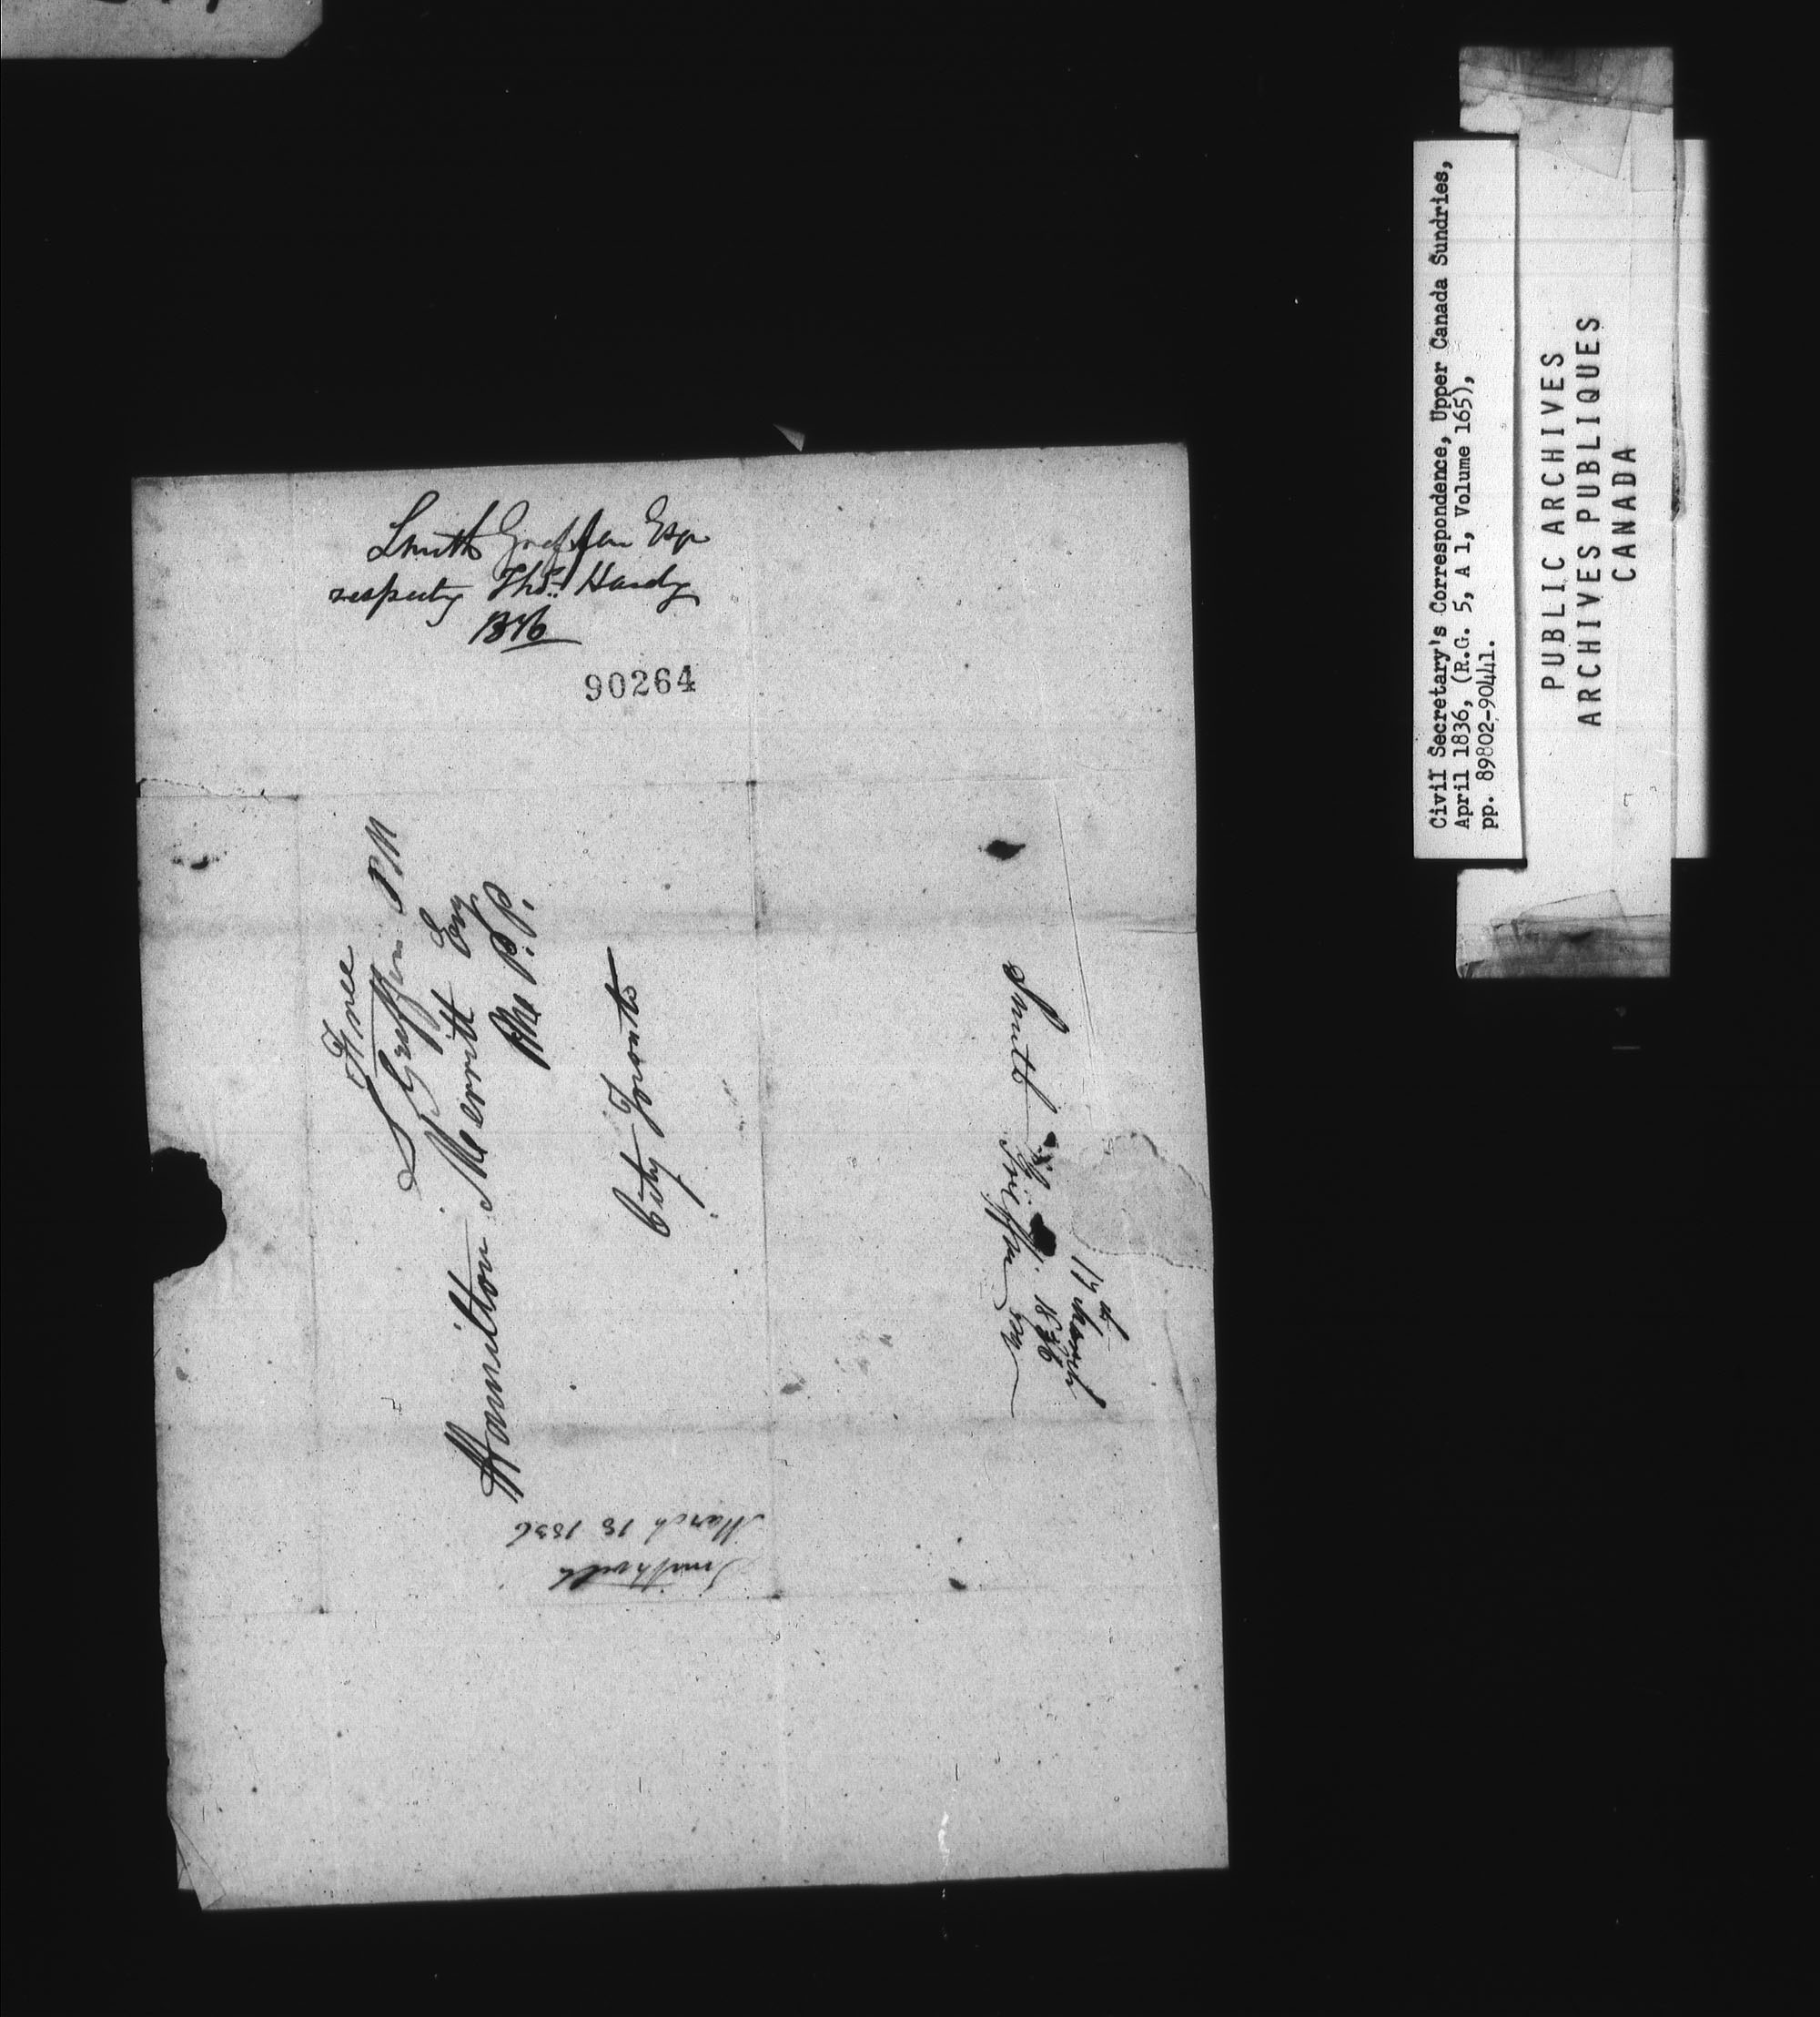 Smith Griffin Esqr
respectg Thos. Hardy
1836
90264
Free
S Griffin PM
Hamilton Merritt Esq
M. P. P.
City Toronto
Smith Griffin Esq
17th March
1836
Smithville
March 18 1836
Civil Secretary's Correspondence, Upper Canada Sundries,
April 1836, (R.G. 5, A 1, Volume 165),
pp. 89802-90441.
PUBLIC ARCHIVES
ARCHIVES PUBLIQUES
CANADA